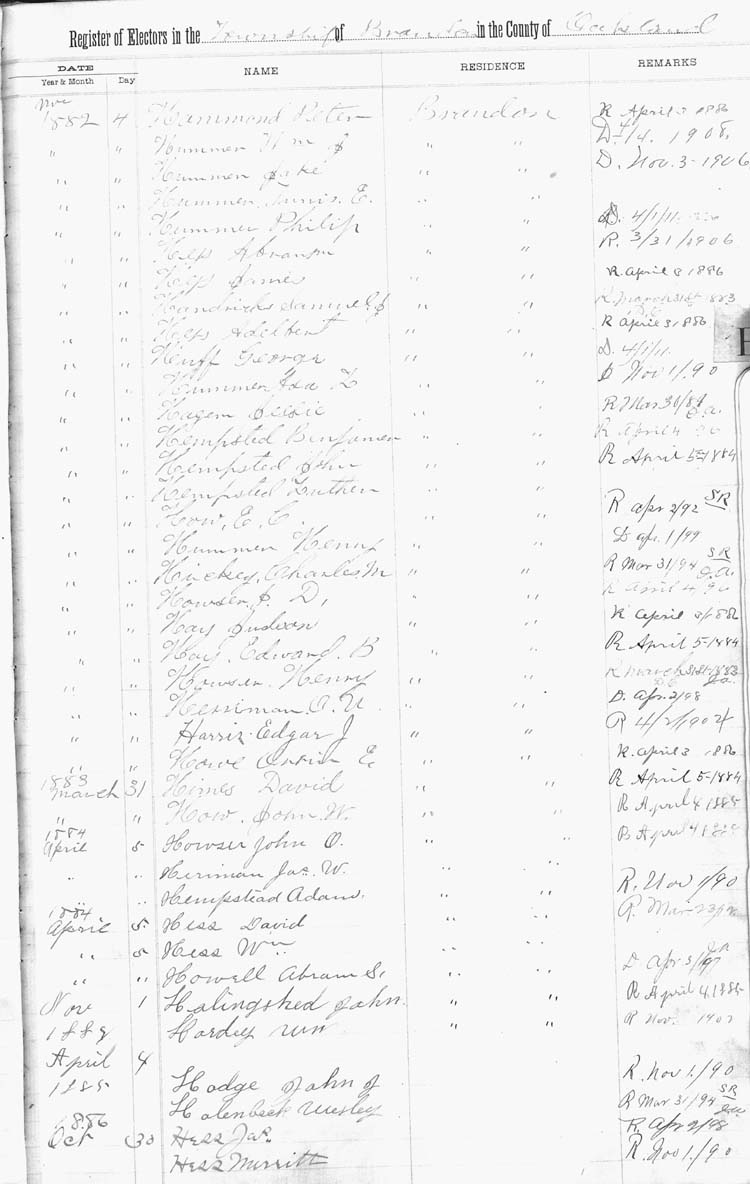 Register of Electors in the Township of Brandon in the County of Oakland
DATE
Year & Month Day NAME RESIDENCE REMARKS
Nov
1882 4 Hammond Peter Brandon R April 3 1886
" " Hummer Wm J " " D. 4/4. 1908,
" " Hummer Jake " " D. Nov. 3-1906
" " Hummer, E. " "
" " Hummer Philip " " D. 4/1/11.
" " Abram " " R. 3/31/1906
" " James " " R. April 3 1886
" " Hendricks Samuel J " " R. March 31st 1883
" " Adelbert " " R April 3 1886
" " Huff George " " D. 4/1/11.
" " Hummer Ira L " " D Nov 1/90
" " Hagem " " R Mar 30/89
" " Hempsted Benjamen " " R April 4
" " Hempsted John " " R April 5-1884
" " Hempsted Luther " "
" " How, E. C. " " R apr 2/92 SR
" " Hummer Henry " " D apr. 1/99
" " Hickey, Charles M " " R Mar 31/94 SR
" " Howser J. D, " " R April 4, 90
" " Hay Judson " " R April 3/1886
" " Hay, Edward B " " R April 5-1884
" " Howser Henry " " R March 31st-1883
" " Herriman O. U. " " D. Apr. 2/98
" " Harris Edgar J " " R 4/2/1904
" " Howe E, " " R. April 3 1886
1883
March 31 Himes David " " R April 5-1884
" " How, John W. " " R April 4 1885
1884
April 5 Howser John O. " " R April 4 1885
" " Heriman Jas. W. " "
" " Hempstead Adam. " " R. Nov 1/90
1884
April 5 Hess David " " R. Mar 23/92
" 5 Hess Wm " "
" " Howell Abram S. " " D Apr 3/97
Nov 1 Holingshed John " " R April 4. 1885
1889 Hardey " " R Nov. 1902
April 4
1885 Hodge John J R. Nov 1./90
Holenbeck Wesley R Mar 31/94 SR
1886
Oct 30 Hess Jas. R. Apr 2/98
Hess Merritt R. Nov 1./90